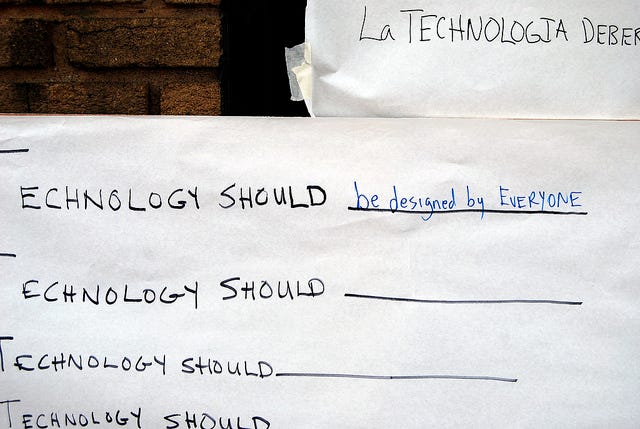 La TECHNOLOGIA DEBER
ECHNOLOGY SHOULD be designed by EVERYONE
ECHNOLOGY SHOULD
TECHNOLOGY SHOULD
TECHNOLOGY SHOULD